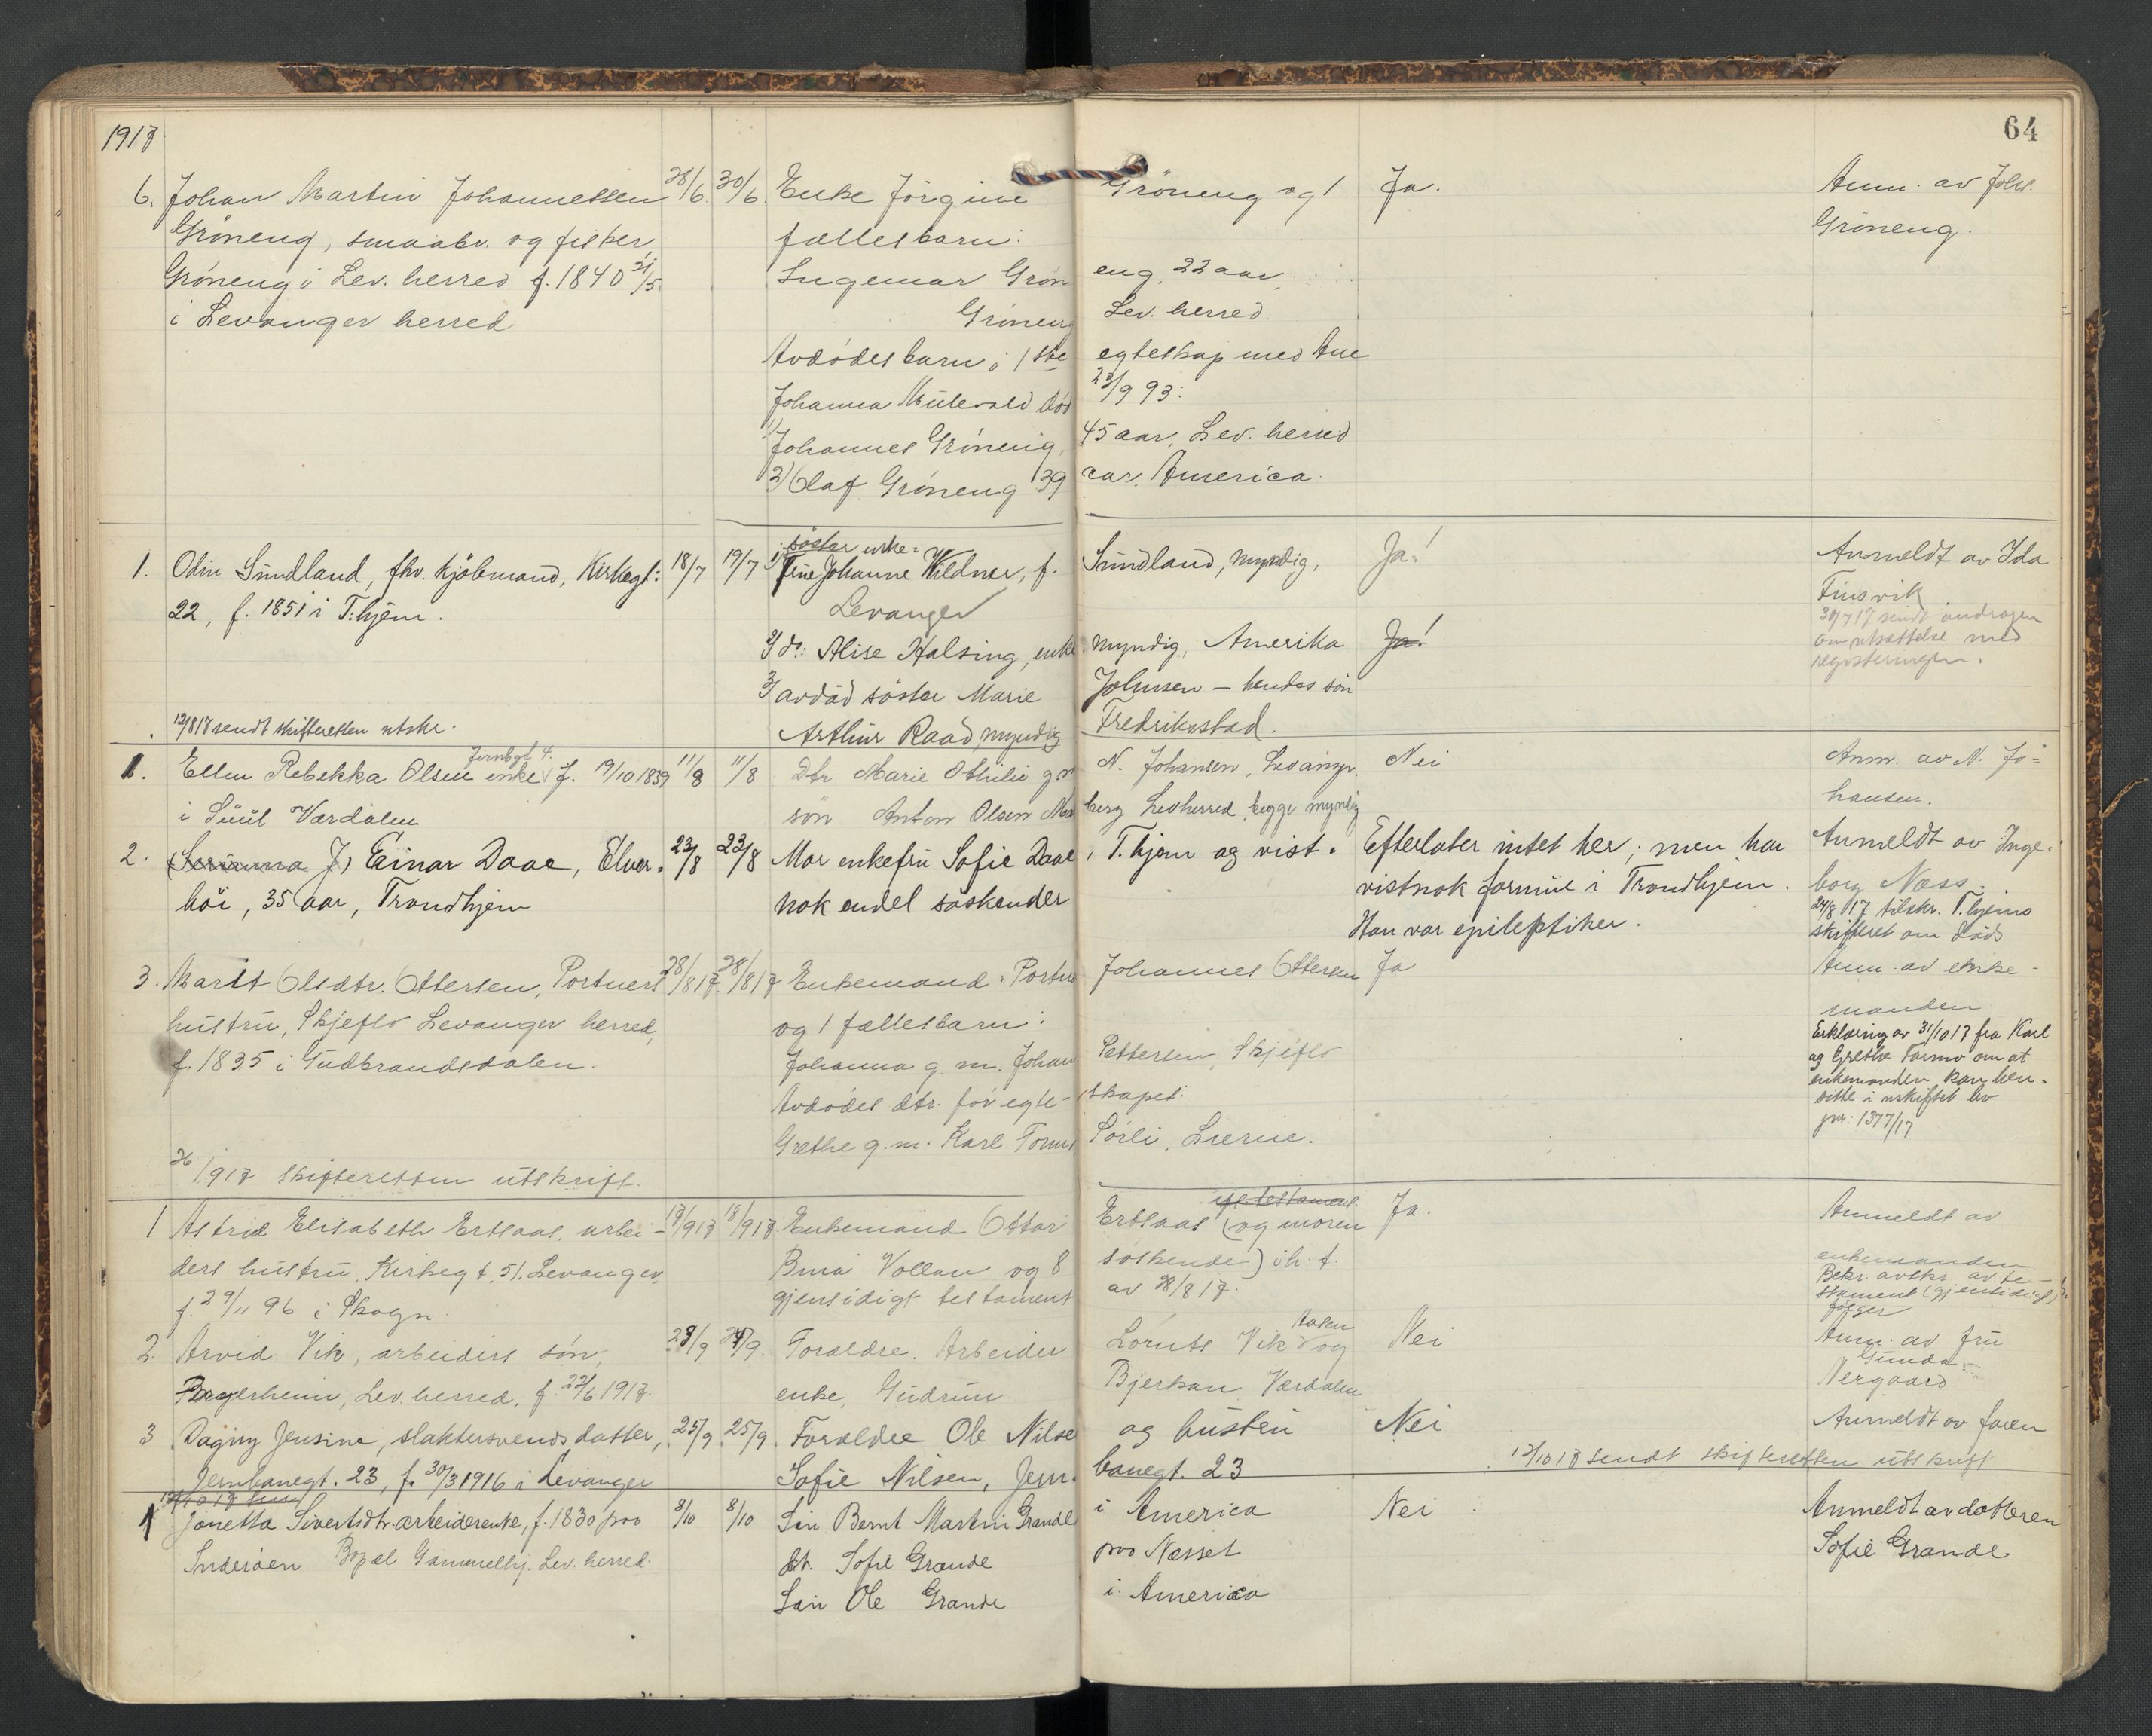 1917
64
6. Johan Martin Johannessen 28/6. 30/6. Enke Jörgine Gröneng og 1 Ja. Anm. av Johs.
Gröneng, smaabr. og fisker fællesbarn: Gröneng.
Gröneng i Lev. herred f. 1840 21/5. Ingemar Grön eng, 22 aar,
i Levanger herred Gröneng Lev. herred.
Avdödes barn i 1ste egteskap med Ane
Johanna död 23/9 93:
1) Johannes Gröneng, 45 aar, Lev. herred
2) Olaf Gröneng 39 aar. America.
1. Odin Sundland, fhv. kjöbmand, Kirkegt: 18/7 19/7 söster enke=
22, f. 1851 i T.hjem. 1) Trine Johanne Wildner, f. Sundland, myndig, Ja! Anmeldt av Ida
Levanger Finsvik
2/ do: Alise Halsing, enke myndig, Amerika Ja! 30/7 17 sendt andragen
om utsættelse med
registeringen.
3/ avdöd söster Marie Johnsen – hendes sön
12/8 17 sendt skifteretten utskr. Arthur Raad myndig Fredrikstad.
1. Ellen Rebekka Olsen enke Jernbgt 4. f. 19/10 1839 11/8 11/8 Dtr Marie Othilie g m N. Johansen, Levanger. Nei Anm. av N. Jo=
i Suul Værdalen sön Anton Olsen berg Lev herred, begge myndig hansen.
2. J) Einar Daae, Elver= 23/8 23/8 Mor enkefru Sofie Daae, T.hjem og vist= Efterlater intet her; men har Anmeldt av Inge=
höi, 35 aar, Trondhjem nok endel söskender vistnok formue i Trondhjem. borg Næss.
Han var epileptiker. 24/8 17 tilskr. T.hjems
skifteret om död
3. Marit Olsdtr. Ottersen, Portners 28/8 17 28/8 17 Enkemand: Portner Johannes Ottersen Ja Anm. av enke-
hustru, Skjeflo Levanger herred, og 1 fællesbarn: manden
f. 1835 i Gudbrandsdalen. Johanna g. m. Johan Pettersen, Skjeflo Erklæring av 31/10 17 fra Karl
og Grethe Formo om at
enkemanden kan hen=
sitte i uskiftet bo
jnr: 1377/17
Avdödes dtr. för egte- skapet:
Grethe g. m. Karl Formo Sörli, Lierne.
26/9 17 skifteretten utskrift.
1 Astrid Elisabeth Ertsaas, arbei- 17/9 17 18/9 17. Enkemand Ottar Ertsaas (og moren Ja. Anmeldt av
ders hustru, Kirkegt. 51. Levanger, Vollan og 8 söskende) ih. t. enkemanden
f. 29/11 96 i Skogn. gjensidigt testament av 28/8 17. Bekr. avskr. av te-
stament (gjensidigt)
fölger
2. Arvid Vik, arbeiders sön, 23/9 24/9. Forældre. Arbeider Lornts Vik og Nei Anm. av fru
Lev. herred, f. 22/6 1917. enke, Gudrun Bjerkan Værdalen Gunda
Nergaard
3 Dagny Jensine, slaktersvends datter, 25/9 25/9. Forældre Ole Nilse og hustru Nei Anmeldt av faren
Jernbanegt. 23, f. 30/3 1916 i Levanger Sofie Nilsen, Jern= banegt. 23 12/10 17 sendt skifteretten utskrift
1 Jonetta Sivertsdtr arbeiderenke, f. 1830 paa 8/10 8/10 Sön Bernt Martin Grande i America Nei Anmeldt av datteren
Inderöen Bopæl Gammelhj. Lev. herred. dt. Sofie Grande paa Nesset Sofie Grande
Sön Ole Grande i America